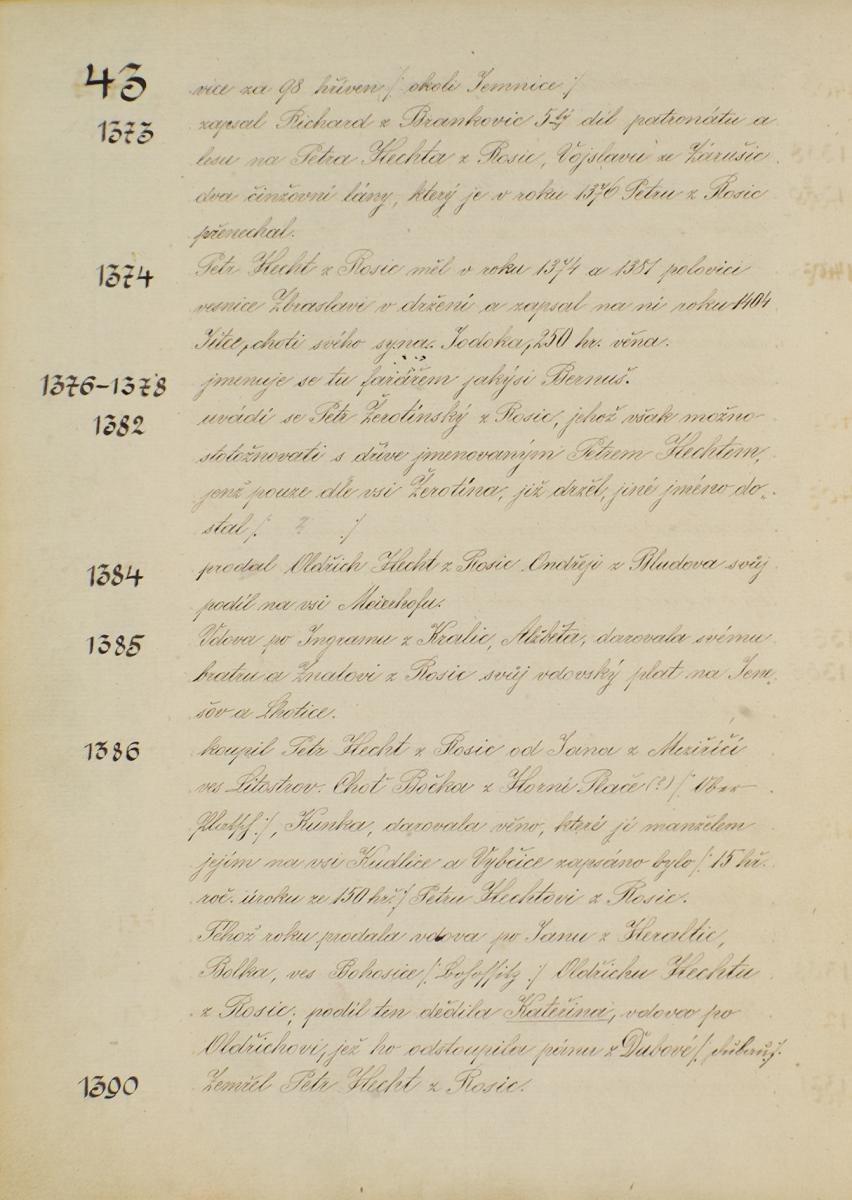 43
vice za 98 hřiven /: okolí Jemnice :/
1373 zapsal Richard z Brankovic 5tý díl patronátu a
lesu na Petra Hechta z Rosic, Vojslavu ze Zárušic
dva činžovní lány, který je v roku 1376 Petru z Rosic
přenechal.
1374 Petr Hecht z Rosic měl v roku 1374 a 1381 polovici
vesnice Zbraslavi v držení a zapsal na ni roku 1404
Jitce, choti svého syna Jodoka, 250 hr. věna.
1376-1378 jmenuje se tu farářem jakýsi Bernuš.
1382 uvádí se Petr Žerotínský z Rosic, jehož však možno
stotožnovati s dříve jmenovaným Petrem Hechtem,
jenž pouze dle vsi Žerotína, již držel, jiné jméno do-
stal /: ? :/
1384 prodal Oldřich Hecht z Rosic Ondřeji z Bludova svůj
podíl na vsi Meierhofu.
1385 Vdova po Ingramu z Kralic, Alžběta, darovala svému
bratru a Znatovi z Rosic svůj vdovský plat na Jem-
šov a Lhotice.
1386 koupil Petr Hecht z Rosic od Jana z Meziříčí
ves Litostrov. Choť Bočka z Horní Plače (?) /: Ober
Platsch :/, Kunka, darovala věno, které jí manželem
jejím na vsi Kudlice a Vybčice zapsáno bylo /: 15 hř.
roč. úroku ze 150 hř. :/ Petru Hechtovi z Rosic.
Téhož roku prodala vdova po Janu z Heraltic,
Bolka, ves Bohosice /: Bohossitz :/ Oldřichu Hechtu
z Rosic; podíl ten dědila Kateřina, vdova po
Oldřichovi, jež ho odstoupila pánu z Dubové
1390 Zemřel Petr Hecht z Rosic.